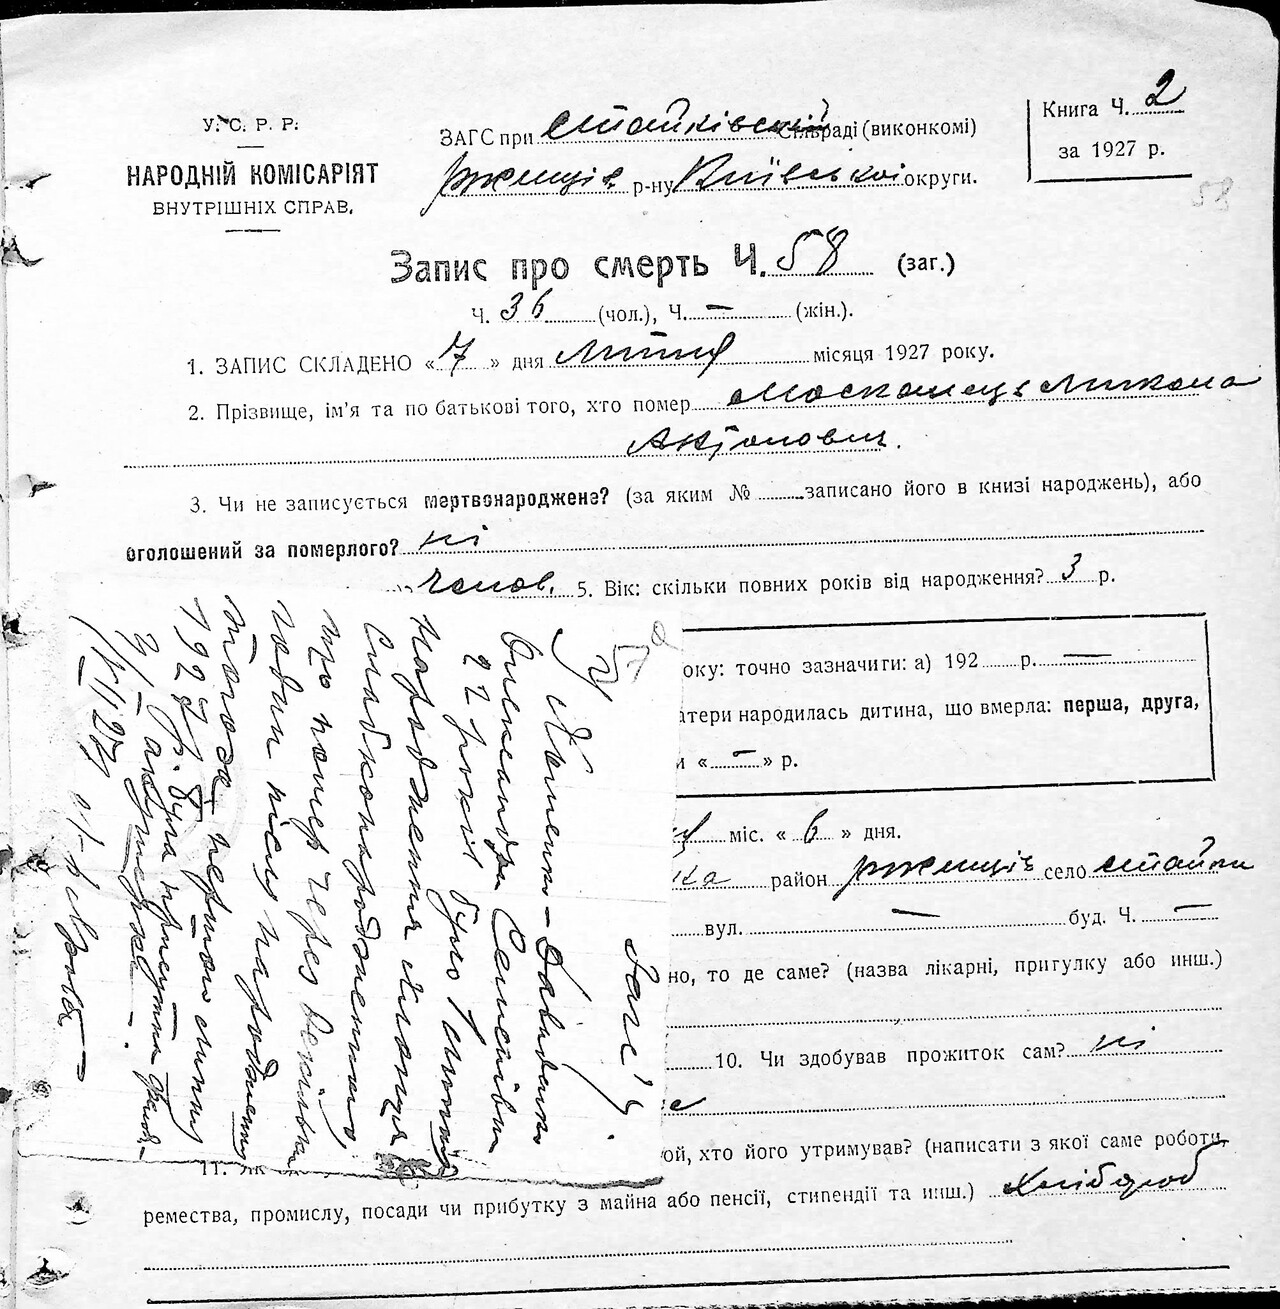 У. С. Р. Р.
НАРОДНІЙ КОМІСАРІЯТ
ВНУТРІШНІХ СПРАВ.
ЗАГС при Стайківській Сільраді (виконкомі)
Ржищів. р-ну Київської округи.
Книга Ч. 2
за 1927 р.
58
Запис про смерть Ч. 58 (заг.)
Ч. 36 (чол.), Ч. — (жін.).
1. ЗАПИС СКЛАДЕНО « 7 » дня липня місяця 1927 року.
2. Прізвище, ім'я та по батькові того, хто помер Москалець Микола
Андронович.
3. Чи не записується мертвонароджене? (за яким № записано його в книзі народжень), або
оголошений за померлого? ні
чолов. 5. Вік: скільки повних років від народження? 3 р.
оку: точно зазначити: а) 192 р. —
атери народилась дитина, що вмерла: перша, друга,
и « — » р.
міс. « 6 » дня.
ка район Ржищів село Стайки
вул. — буд. Ч. —
но, то де саме? (назва лікарні, пригулку або инш.)
10. Чи здобував прожиток сам? ні
ой, хто його утримував? (написати з якої саме роботи,
ремества, промислу, посади чи прибутку з майна або пенсії, стипендії та инш.) Хлібороб
57а
Загс'у
У
Давиденко
Олександри Семенівни
22 років було 1 липня
народження хлопця
слабконародженного,
що помер через декілька
годин після народження
тогож першого липня
1927 р. була присутня
акушерка.
1/VII 27